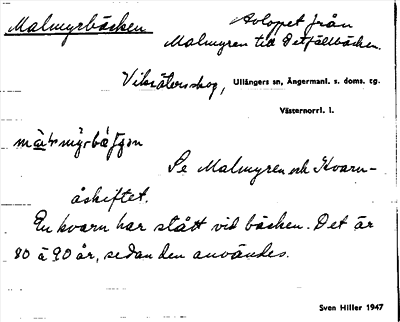 Malmyrbäcken
Avloppet från
Malmyren till Detfällbäcken.
Ullångers sn, Ångermanl. s. doms. tg.
Västernorrl. l.
Se Malmyren och Kvarn-
åskiftet.
En kvarn har stått vid bäcken. Det är
80 à 90 år, sedan den användes.
Sven Hiller 1947